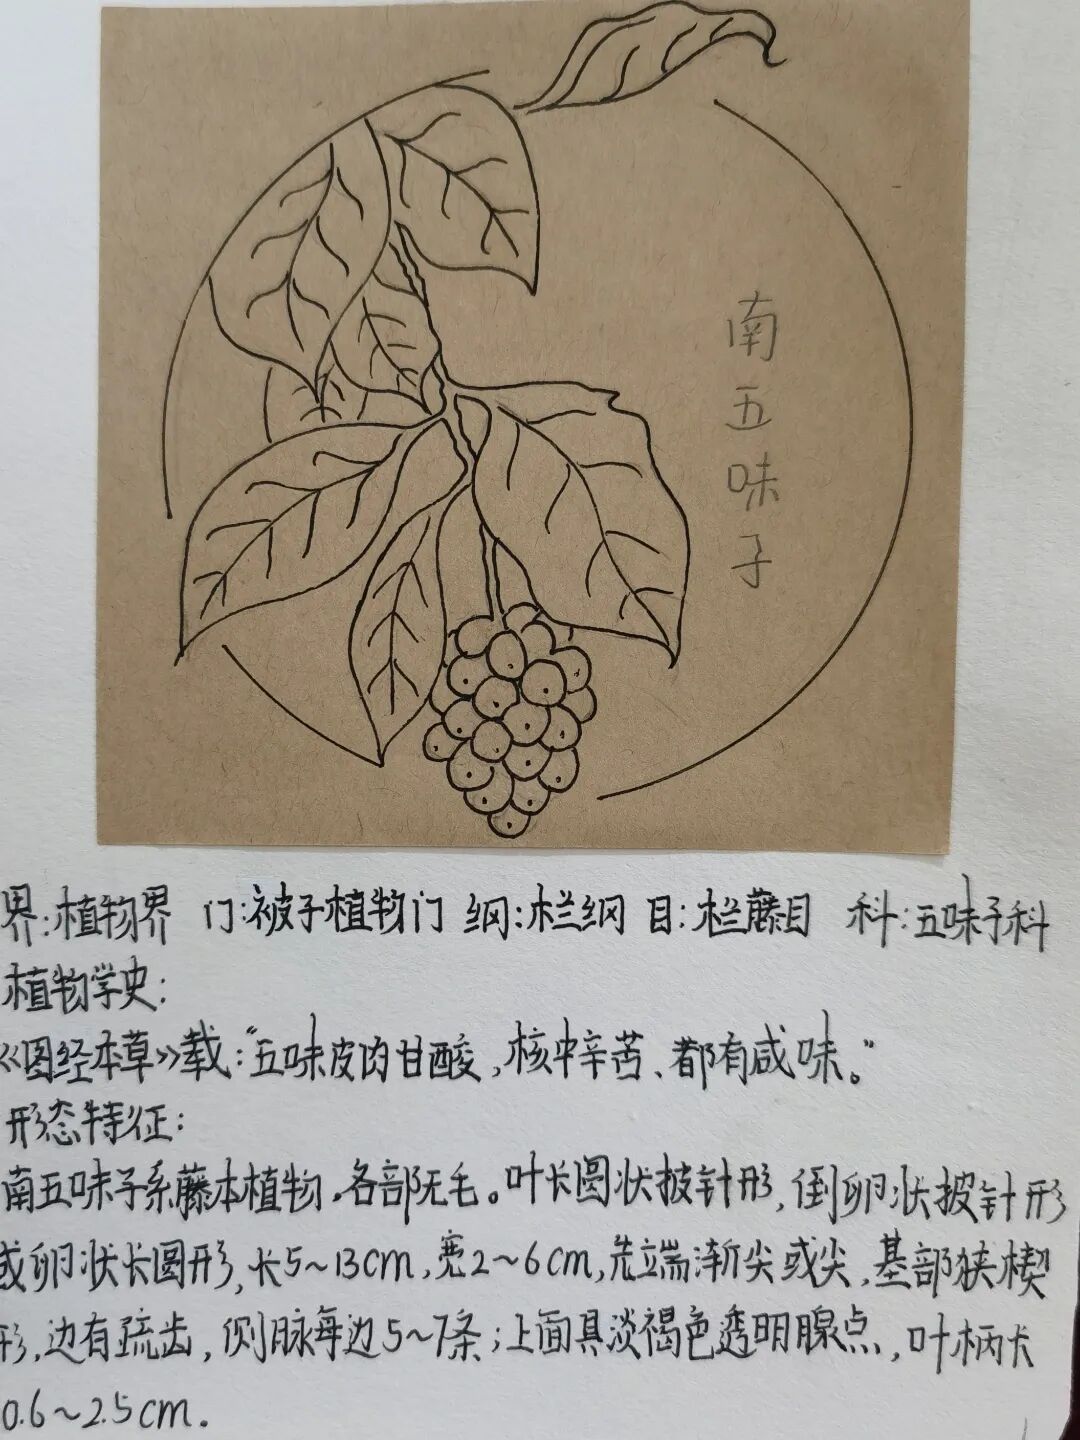 南五味子
界:植物界 门:被子植物门 纲:栏纲 目:栏藤目 科:五味子科
植物学史:
《图经本草》载:“五味皮肉甘酸,核中辛苦、都有咸味。”
形态特征:
南五味子系藤本植物.各部无毛。叶长圆状披针形,倒卵状披针形
或卵状长圆形,长5~13cm,宽2~6cm,先端渐尖或尖,基部狭楔
形,边有疏齿,侧脉每边5~7条;上面具淡褐色透明腺点,叶柄长
0.6~2.5cm.